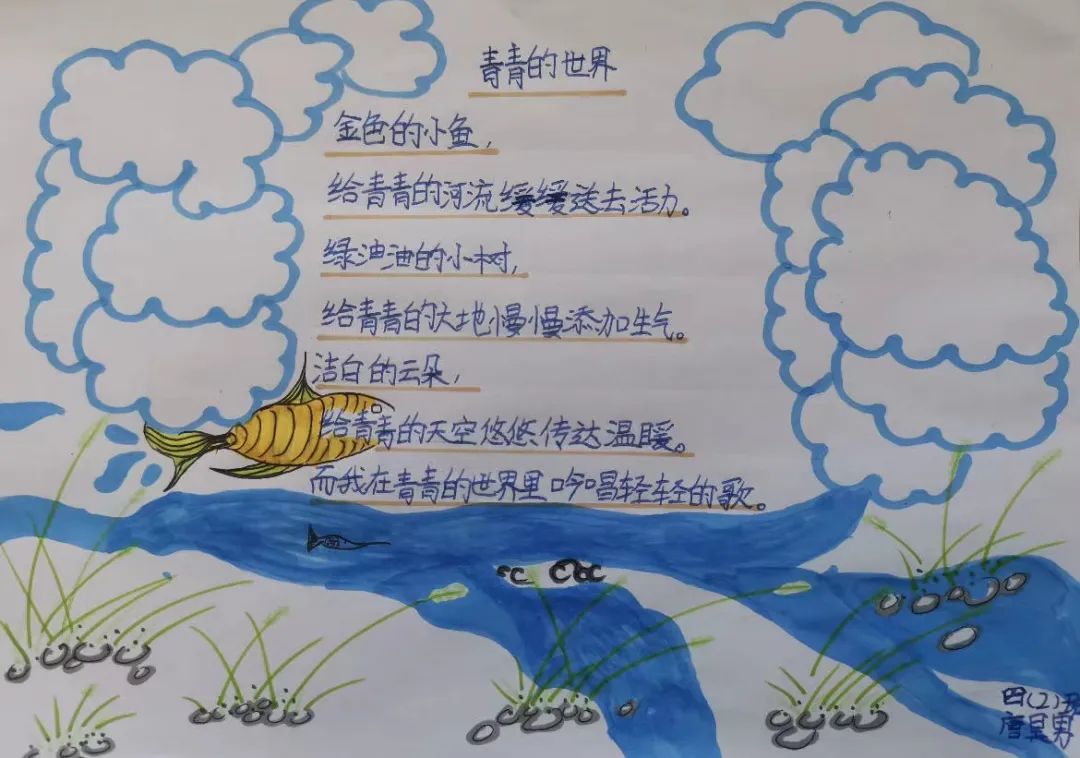 青青的世界
金色的小鱼，
给青青的河流缓缓送去活力。
绿油油的小树，
给青青的大地慢慢添加生气。
洁白的云朵，
给青青的天空悠悠传达温暖。
而我在青青的世界里吟唱轻轻的歌。
四(2)班
唐昊男